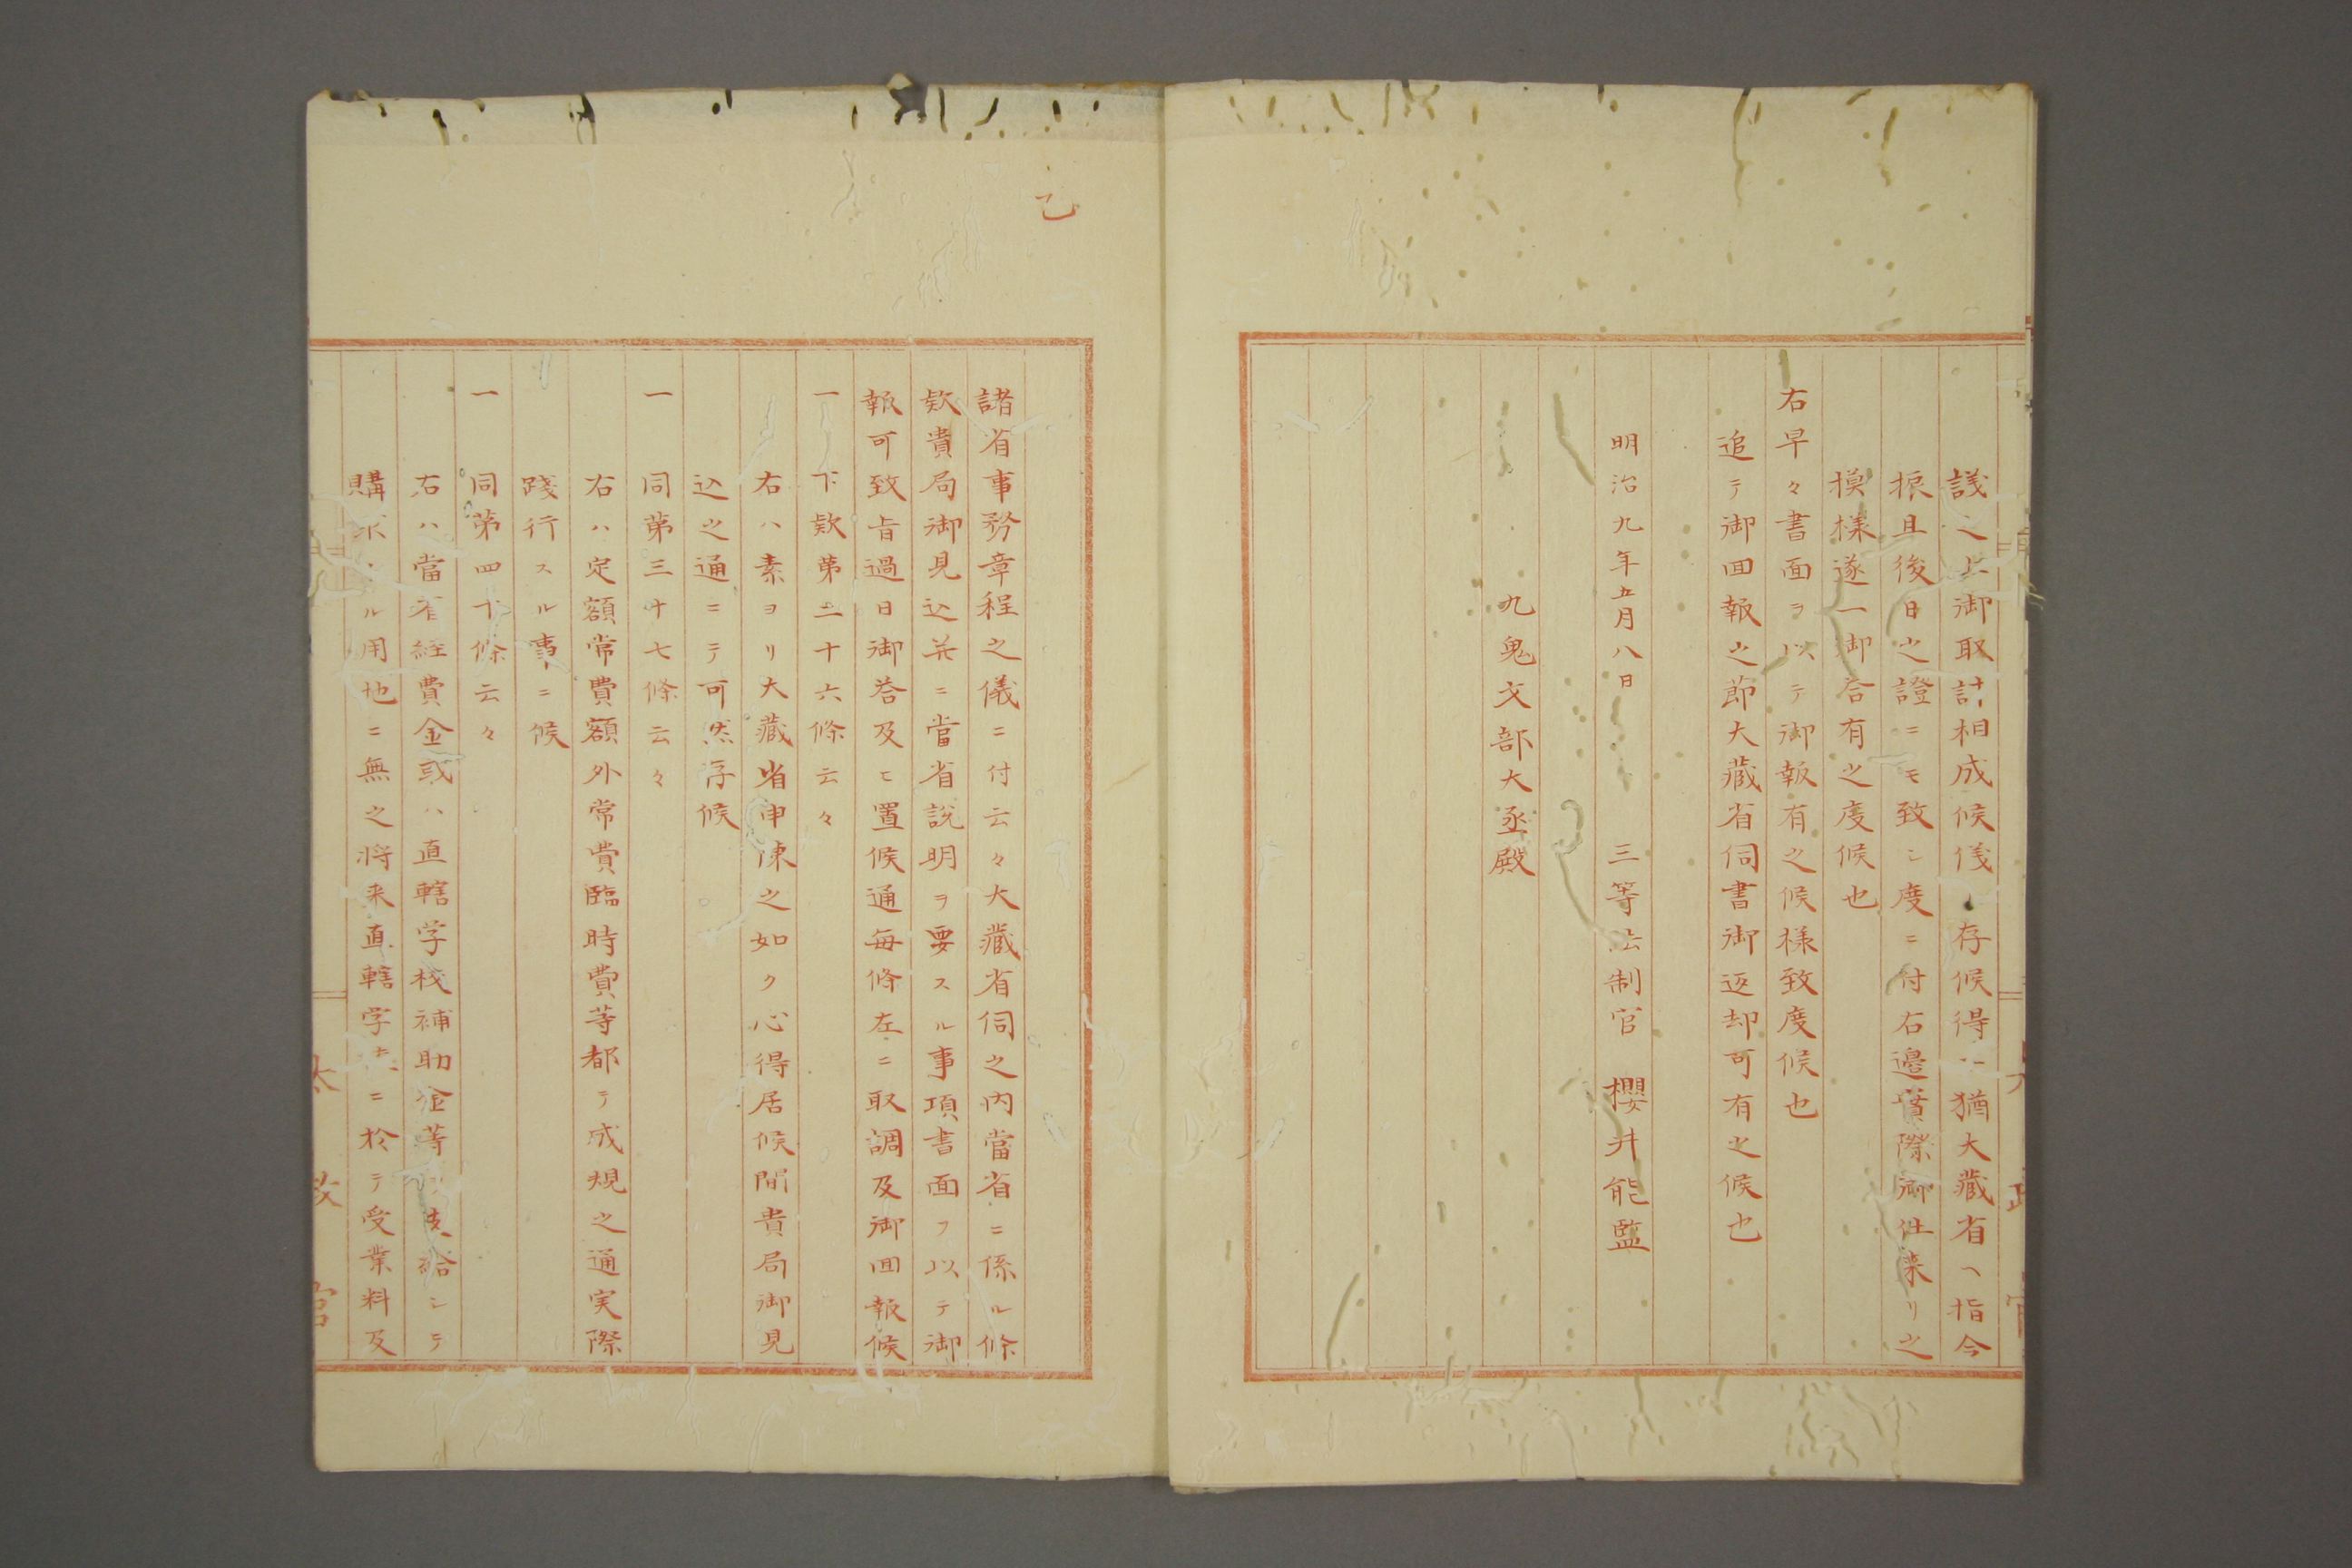 議之上御取計相成候儀ト存候得共猶大藏省ヘ指令
振且後日之證ニモ致シ度ニ付右邊實際御仕来リ之
模樣逐一御答有之度候也
右早々書面ヲ以テ御報有之候様致度候也
追テ御回報之節大藏省伺書御返却可有之候也
明治九年五月八日　三等法制官　櫻井能監
九鬼文部大丞殿
乙
諸省事務章程之儀ニ付云々大藏省伺之内當省ニ係ル條
欵貴局御見込并ニ當省説明ヲ要スル事項書面ヲ以テ御
報可致旨過日御答及ヒ置候通毎條左ニ取調及御回報候
一　下欵第三十六條云々
右ハ素ヨリ大藏省申陳之如ク心得居候間貴局御見
込之通ニテ可然存候
一　同第三十七條云々
右ハ定額常費額外常費臨時費等都テ成規之通実際
踐行スル事ニ候
一　同第四十條云々
右ハ當省経費金或ハ直轄学校補助金等支給シテ
購求スル用地ニ無之将来直轄学校ニ於テ受業料及
太政官